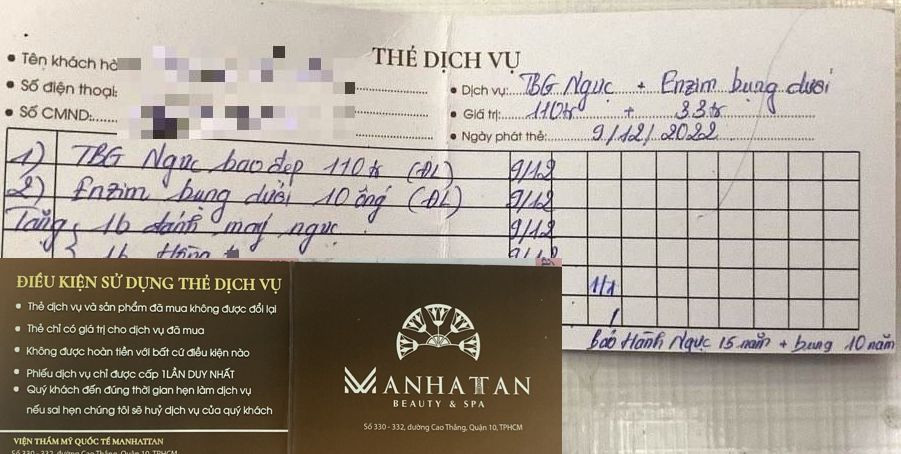 THẺ DỊCH VỤ
Tên khách hà
Số điện thoại:
Số CMND:
Dịch vụ: TBG Ngực + Enzim bụng dưới
Giá trị: 110tr + 33tr
Ngày phát thẻ: 9/12/2022
1) TBG Ngực bao đẹp 110tr (ĐL) 9/12
2) Enzim bụng dưới 10 ống (ĐL) 9/12
Tặng 1b đánh máy ngực 9/12
1b 9/12
1/1
bảo Hành Ngực 15 năm + bụng 10 năm
ĐIỀU KIỆN SỬ DỤNG THẺ DỊCH VỤ
Thẻ dịch vụ và sản phẩm đã mua không được đổi lại
Thẻ chỉ có giá trị cho dịch vụ đã mua
Không được hoàn tiền với bất cứ điều kiện nào
Phiếu dịch vụ chỉ được cấp 1 LẦN DUY NHẤT
Quý khách đến đúng thời gian hẹn làm dịch vụ
nếu sai hẹn chúng tôi sẽ huỷ dịch vụ của quý khách
VIỆN THẨM MỸ QUỐC TẾ MANHATTAN
Số 330 - 332, đường Cao Thắng, Quận 10, TPHCM
MANHATTAN
BEAUTY & SPA
Số 330 - 332, đường Cao Thắng, Quận 10, TPHCM